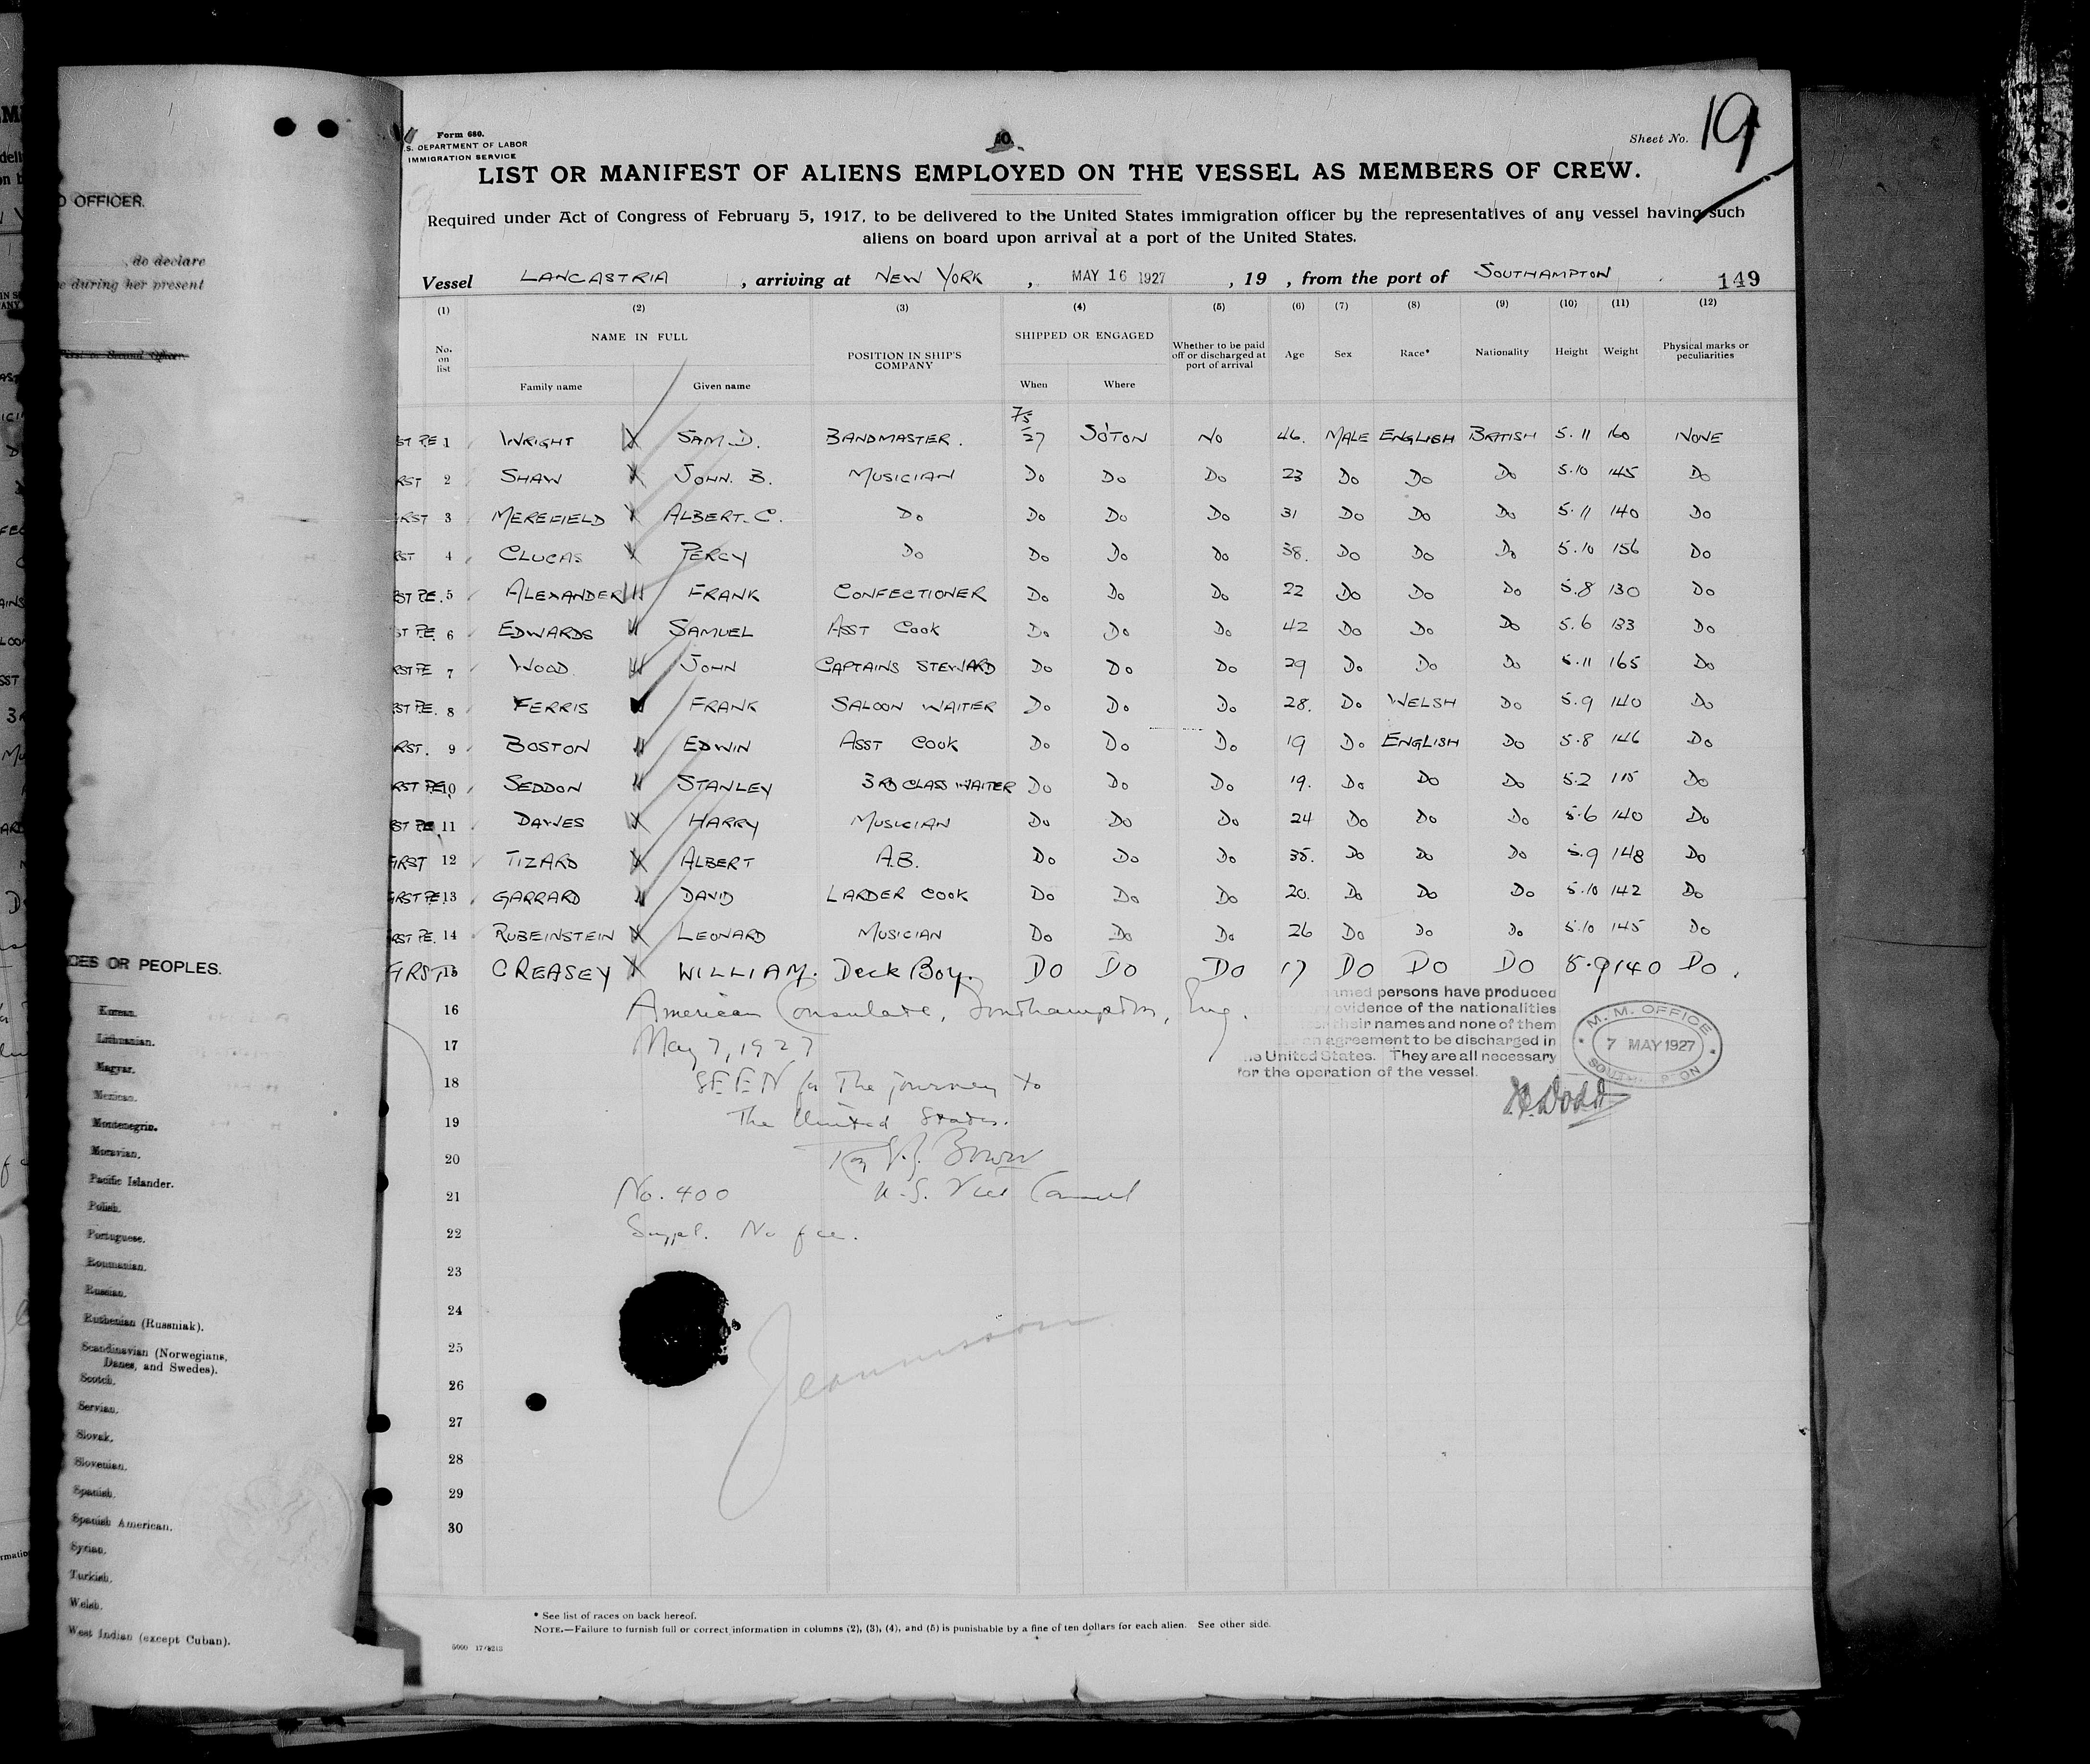 O OFFICER.
, do declare
during her present
First or Second Officer.
CES OR PEOPLES.
Korean.
Lithuanian.
Magyar.
Mexican.
Montenegrin.
Moravian.
Pacific Islander.
Polish.
Portuguese.
Roumanian.
Russian.
Ruthenian (Russniak).
Scandinavian (Norwegians,
Danes, and Swedes).
Scotch.
Servian.
Slovak.
Slovenian.
Spanish.
Spanish American.
Syrian.
Turkish.
Welsh.
West Indian (except Cuban).
Form 680.
S. DEPARTMENT OF LABOR
IMMIGRATION SERVICE
Sheet No. 19
LIST OR MANIFEST OF ALIENS EMPLOYED ON THE VESSEL AS MEMBERS OF CREW.
Required under Act of Congress of February 5, 1917, to be delivered to the United States immigration officer by the representatives of any vessel having such
aliens on board upon arrival at a port of the United States.
Vessel LANCASTRIA , arriving at NEW YORK , MAY 16 1927 , 19 , from the port of SOUTHAMPTON 149
(1) (2) (3) (4) (5) (6) (7) (8) (9) (10) (11) (12)
No. on list NAME IN FULL Family name Given name POSITION IN SHIP'S COMPANY SHIPPED OR ENGAGED When Where Whether to be paid off or discharged at port of arrival Age Sex Race* Nationality Height Weight Physical marks or peculiarities
ST PE 1 WRIGHT X SAM. D. BANDMASTER. 7/5/27 SO'TON NO 46. MALE ENGLISH BRITISH 5.11 160 NONE
RST 2 SHAW X JOHN. B. MUSICIAN Do Do Do 23 Do Do Do 5.10 145 Do
RST 3 MEREFIELD X ALBERT. C. Do Do Do Do 31 Do Do Do 5.11 140 Do
RST 4 CLUCAS X PERCY Do Do Do Do 38. Do Do Do 5.10 156 Do
ST PE. 5 ALEXANDER FRANK CONFECTIONER Do Do Do 22 Do Do Do 5.8 130 Do
ST PE 6 EDWARDS SAMUEL ASST COOK Do Do Do 42 Do Do Do 5.6 133 Do
RST PE 7 WOOD JOHN CAPTAINS STEWARD Do Do Do 29 Do Do Do 5.11 165 Do
ST PE. 8 FERRIS FRANK SALOON WAITER Do Do Do 28. Do WELSH Do 5.9 140 Do
RST. 9 BOSTON EDWIN ASST COOK Do Do Do 19 Do ENGLISH Do 5.8 146 Do
RST PE 10 SEDDON STANLEY 3RD CLASS WAITER Do Do Do 19. Do Do Do 5.2 115 Do
ST PE 11 DAWES X HARRY MUSICIAN Do Do Do 24 Do Do Do 5.6 140 Do
FIRST 12 TIZARD X ALBERT A.B. Do Do Do 35. Do Do Do 5.9 148 Do
RST PE 13 GARRARD DAVID LARDER COOK Do Do Do 20. Do Do Do 5.10 142 Do
RST PE. 14 RUBEINSTEIN X LEONARD MUSICIAN Do Do Do 26 Do Do Do 5.10 145 Do
FIRST 15 CREASEY X WILLIAM. Deck Boy. DO DO DO 17 DO DO DO 5.9 140 DO.
named persons have produced
evidence of the nationalities
their names and none of them
an agreement to be discharged in
the United States. They are all necessary
for the operation of the vessel.
M. M. OFFICE
7 MAY 1927
SOUTHAMPTON
Dodd
16 American Consulate, Southampton, Eng.
17 May 7, 1927
18 SEEN for the journey to
19 The United States.
20 Bower
21 No. 400 U.S. Vice Consul
22 Suppl. No fee.
23
24
25
26
27
28
29
30
* See list of races on back hereof.
NOTE.—Failure to furnish full or correct information in columns (2), (3), (4), and (5) is punishable by a fine of ten dollars for each alien. See other side.